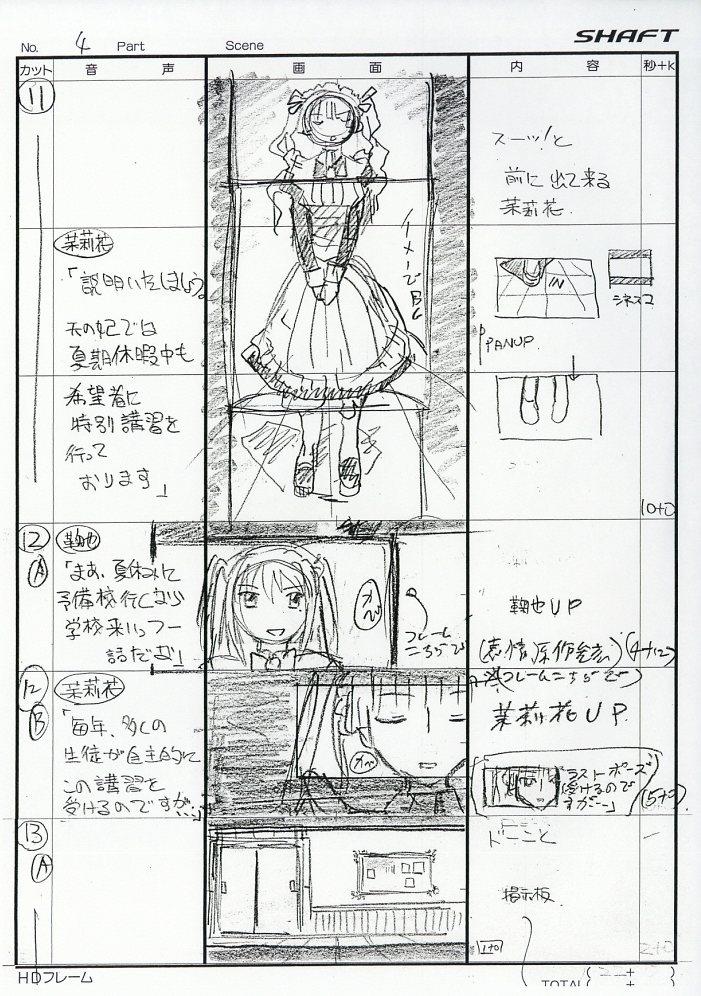 No. 4 Part Scene SHAFT
カット 音声 画面 内容 秒+k
11
スーッ!と
前に出て来る
茉莉花
茉莉花
「説明いたしましょう。
天の妃では
夏期休暇中も
希望者に
特別講習を
行って
おります」
イメージBG
IN
シネスコ
PANUP.
10+0
12
A
鞠也
「まあ、夏休みに
予備校行くなら
学校来いっつー
話だな」
カベ
フレーム
こちらで
鞠也UP
(表情原作参考)
(4+12)
12
B
茉莉花
「毎年、多くの
生徒が自主的に
この講習を
受けるのですが…」
カベ
(フレームこちらで)
茉莉花UP.
ラストポーズ
「受けるので
すが…」
(5+0)
13
A
掲示板
1+0
2+0
HDフレーム
TOTAL ( + )